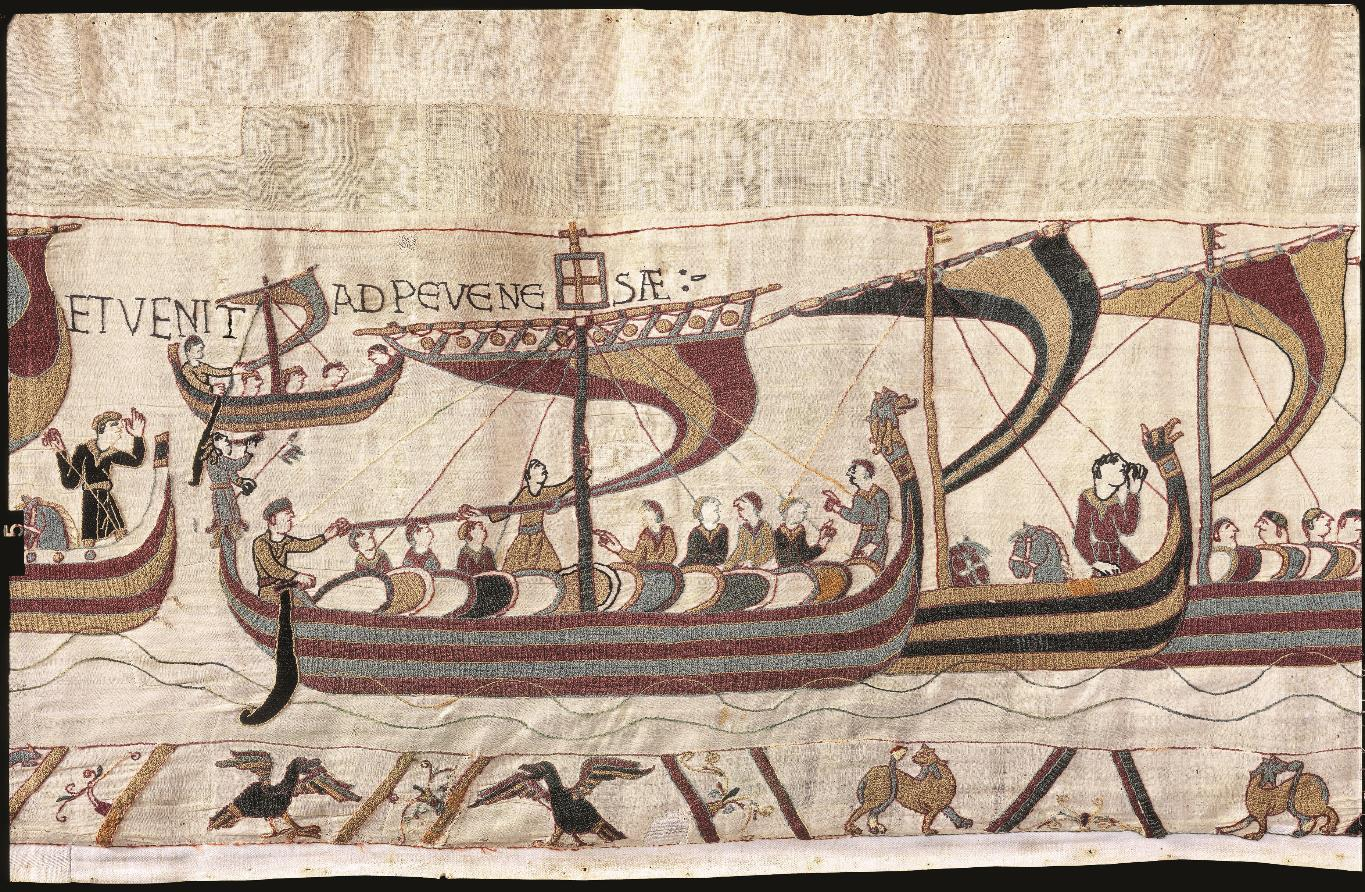 ET VENIT AD PEVENE SÆ :-
5